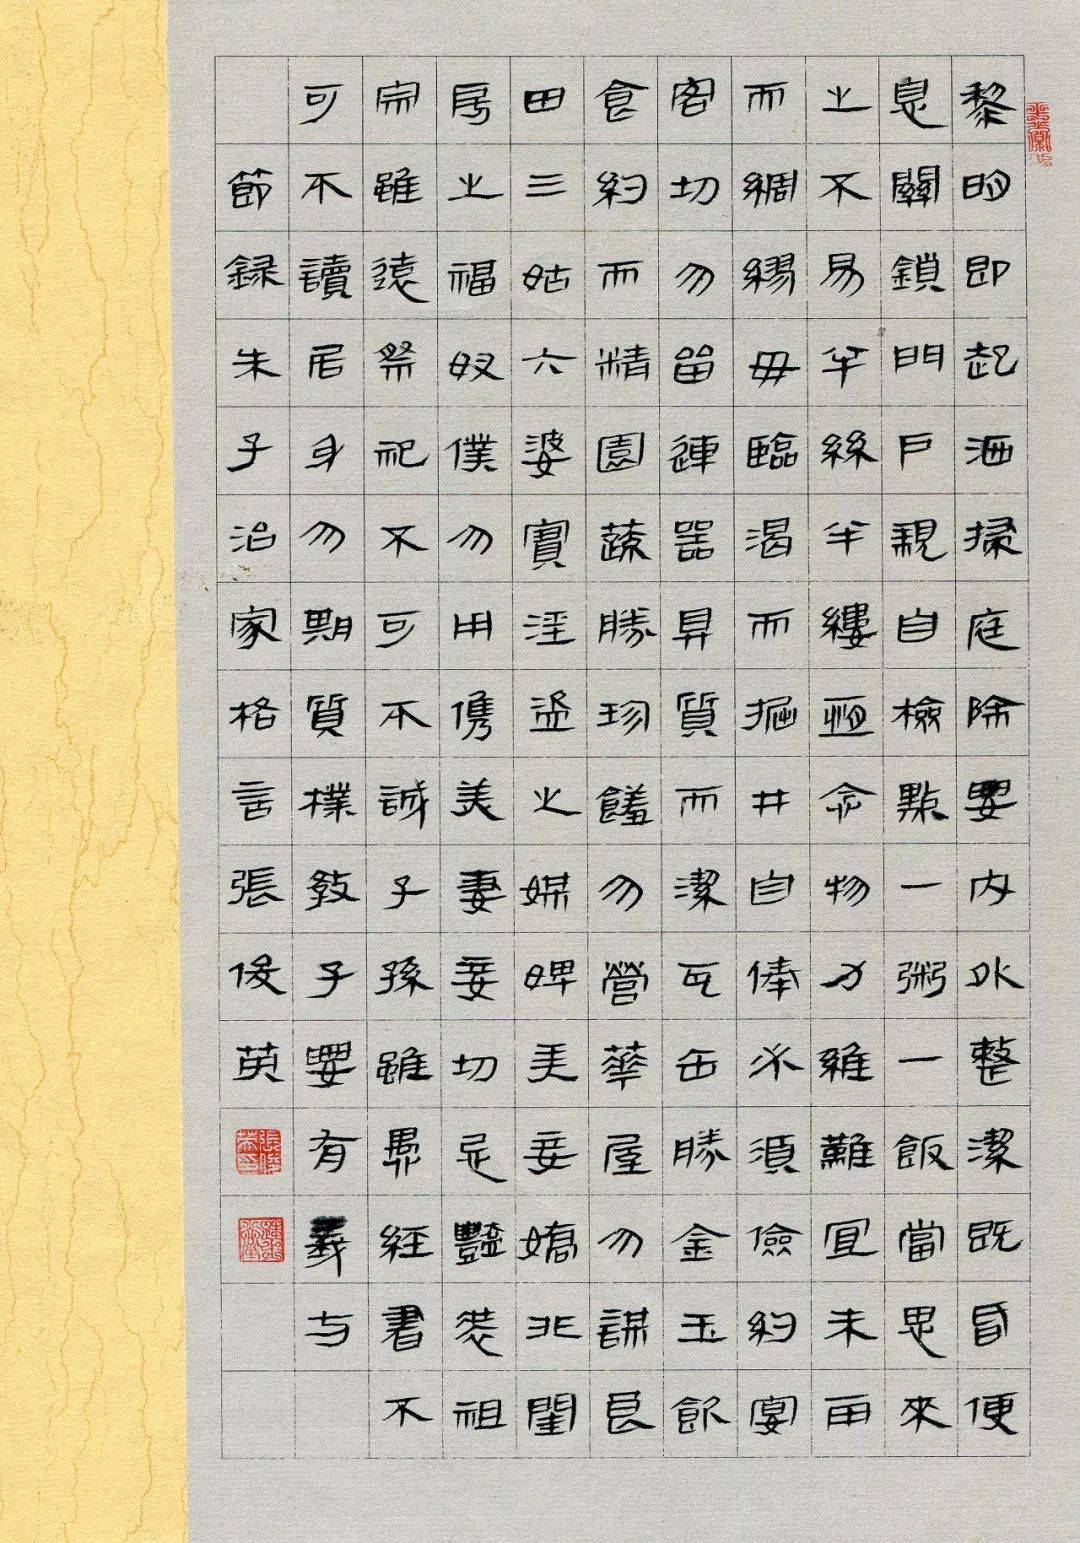 黎明即起洒掃庭除要內外整潔既昏便
息關鎖門戶親自檢點一粥一飯當思來
之不易半絲半縷恆念物力維難宜未雨
而綢繆毋臨渴而掘井自俸必須儉約宴
客切勿留連器具質而潔瓦缶勝金玉飲
食約而精園蔬勝珍饈勿營華屋勿謀良
田三姑六婆實淫盜之媒婢美妾嬌非閨
房之福奴僕勿用儁美妻妾切忌豔裝祖
宗雖遠祭祀不可不誠子孫雖愚經書不
可不讀居身勿期質樸教子要有義与
節録朱子治家格言張俊英